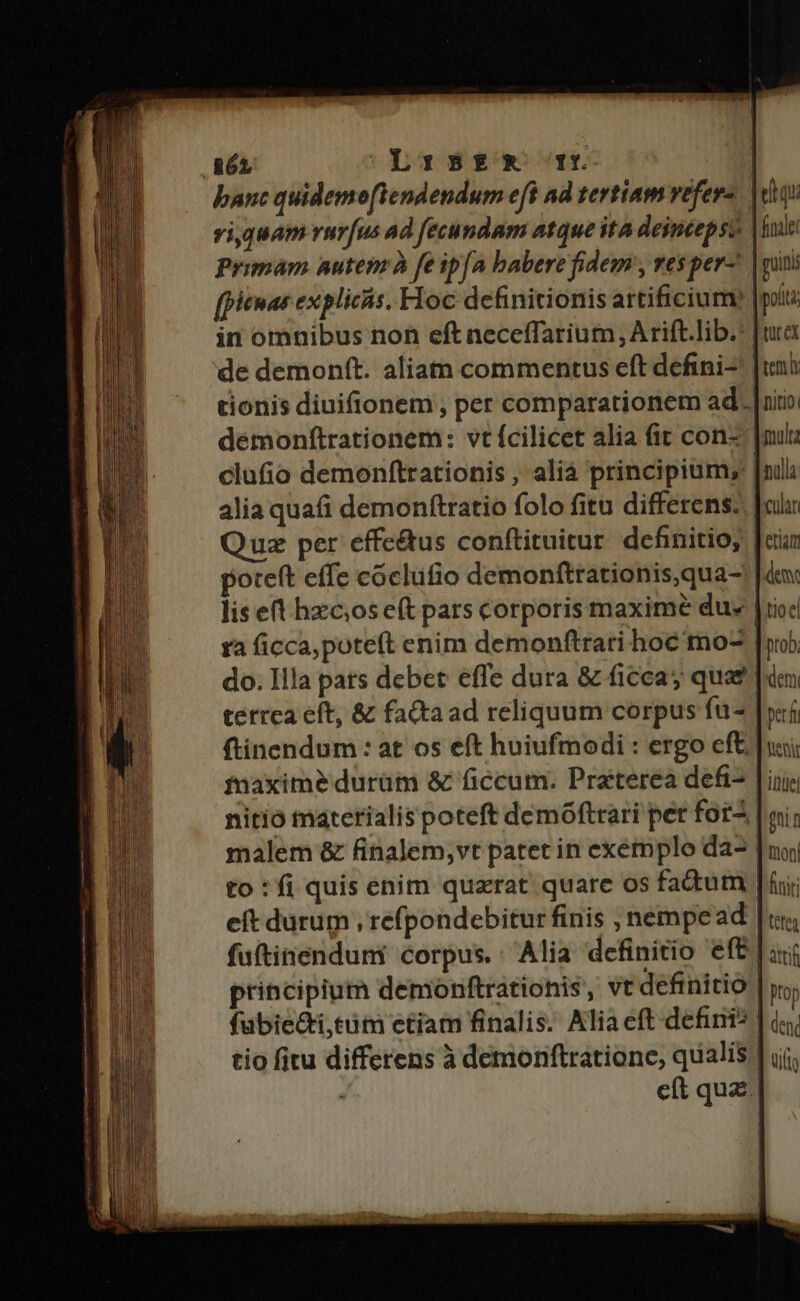 162 LIBER II.
hanc quidem oſtendendum eſt ad tertiam refer-
ri, quam rurſus ad ſecundam atque ita deinceps:
Primam autem à ſe ipſa habere fidem, res per-
ſpicuas explicās. Hoc definitionis artificium
in omnibus non eſt neceſſarium, Ariſt. lib.
de demonſt. aliam commentus eſt defini-
tionis diuiſionem, per comparationem ad
demonſtrationem: vt ſcilicet alia ſit con-
cluſio demonſtrationis, alia principium,
alia quaſi demonſtratio ſolo ſitu differens.
Quæ per effectus conſtituitur definitio,
poteſt eſſe cōcluſio demonſtrationis, qua-
lis eſt hæc, os eſt pars corporis maximè du-
ra ſicca, poteſt enim demonſtrari hoc mo-
do. Illa pars debet eſſe dura & ſicca, quæ
terrea eſt, & facta ad reliquum corpus ſu-
ſtinendum: at os eſt huiuſmodi: ergo eſt
maximè durum & ſiccum. Præterea defi-
nitio materialis poteſt demōſtrari per for-
malem & finalem, vt patet in exemplo da-
to: ſi quis enim quærat quare os factum
eſt durum, reſpondebitur finis, nempe ad
ſuſtinendum corpus. Alia definitio eſt
principium demonſtrationis, vt definitio
ſubiecti, tùm etiam finalis. Alia eſt defini-
tio ſitu differens à demonſtratione, qualis
eſt quæ